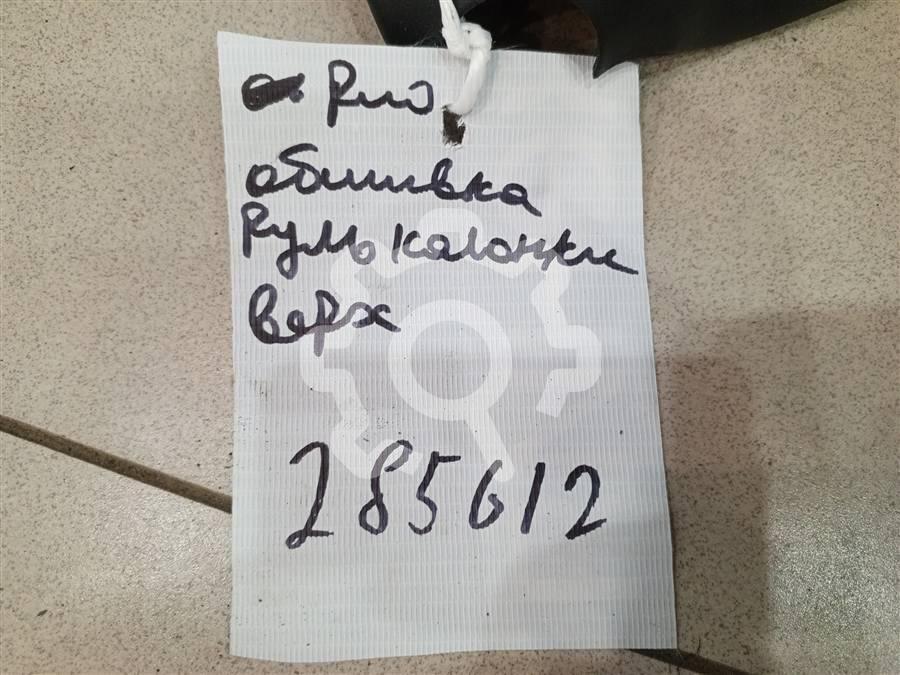 Рио
обшивка
Руль колонки
верх
285612